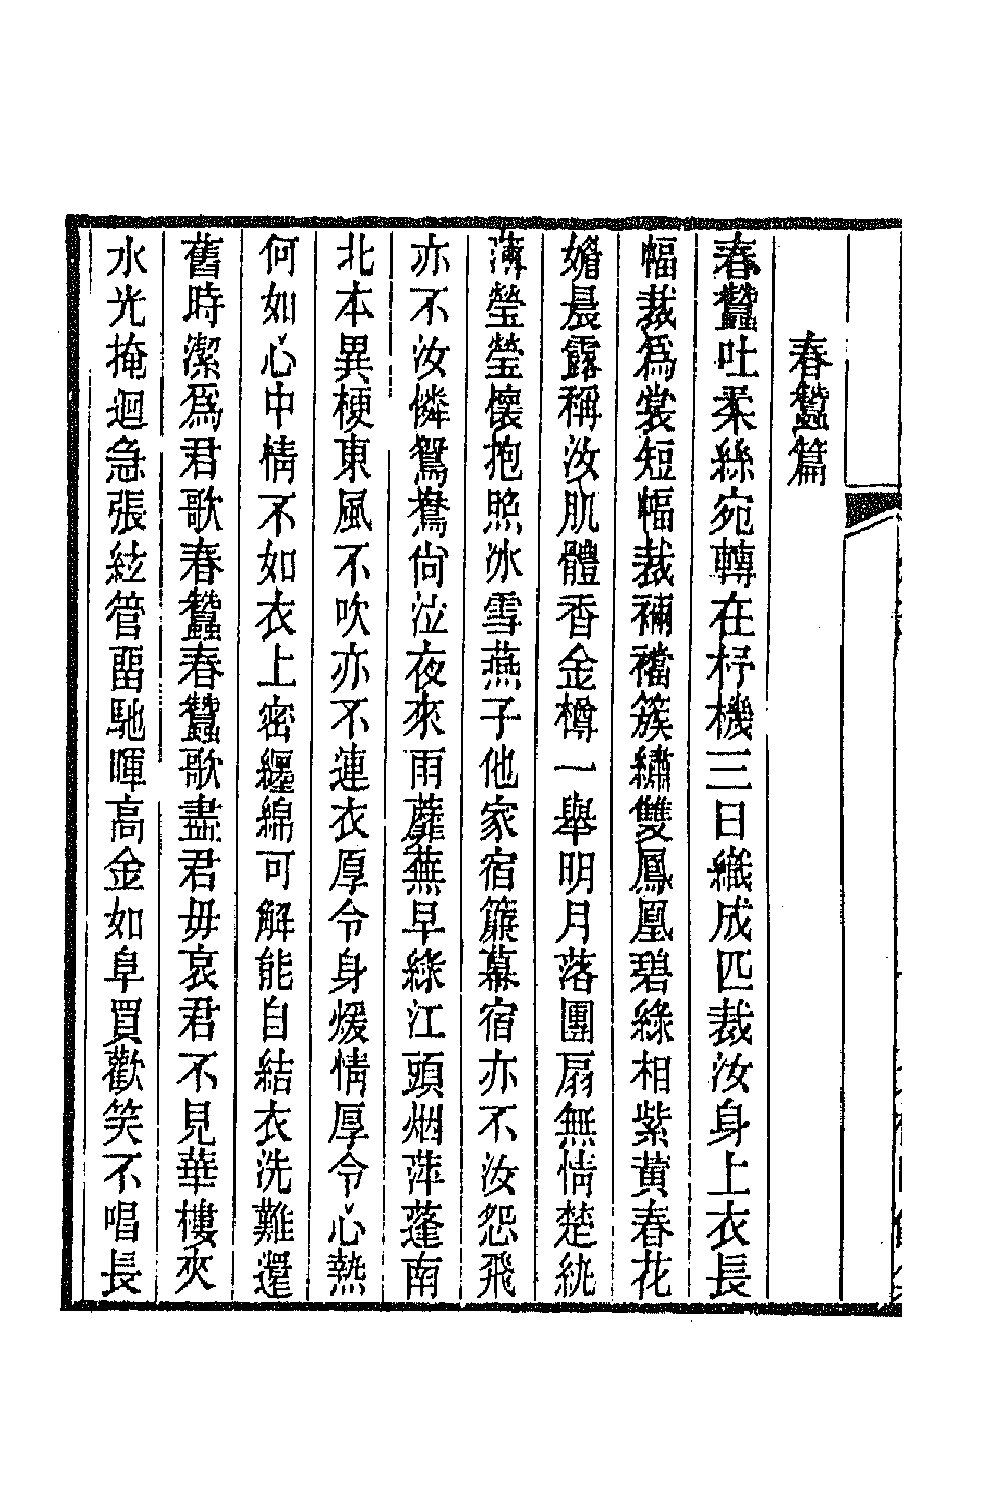 春蠶篇
春蠶吐柔絲宛轉在杼機三日織成匹裁汝身上衣長
幅裁爲裳短幅裁裲襠簇繡雙鳳凰碧綠相紫黃春花
媚晨露稱汝肌體香金樽一舉明月落團扇無情楚紈
薄瑩瑩懷抱照冰雪燕子他家宿簾幕宿亦不汝怨飛
亦不汝憐鴛鴦尙泣夜來雨蘼蕪早綠江頭烟萍蓬南
北本異梗東風不吹亦不連衣厚令身煖情厚令心熱
何如心中情不如衣上密纏綿可解能自結衣洗難還
舊時潔爲君歌春蠶春蠶歌盡君毋哀君不見華樓夾
水光掩迴急張絃管畱馳暉高金如阜買歡笑不唱長